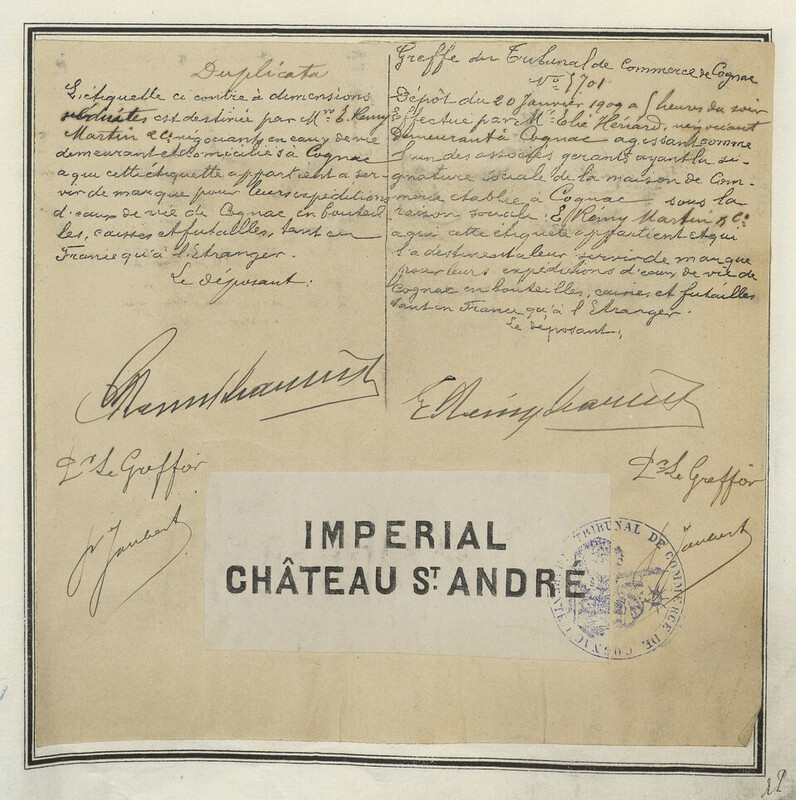 Duplicata
L'étiquette ci contre à dimensions
réduites est destinée par Mrs E. Remy
Martin & Co négociants en eaux de vie
demeurant et domiciliés à Cognac
a qui cette étiquette appartient a ser-
vir de marque pour leurs expéditions
d'eaux de vie de Cognac en bouteil
les, caisses et futailles, tant en
France qu'à l'Etranger.
Le déposant:
Greffe du Tribunal de Commerce de Cognac
No 5701
Dépôt du 20 Janvier 1909 a 5 heures du soir
Effectué par Mr Elié Hériard, négociant
demeurant à Cognac agissant comme
l'un des associés gérants ayant la si-
gnature sociale de la maison de Com-
merce établie à Cognac sous la
raison sociale: E. Remy Martin & Co
a qui cette étiquete appartient et qui
l'a destine a leur servir de marque
pour leurs expéditions d'eaux de vie de
Cognac en bouteilles, caisses et futailles
tant en France qu'à l'Etranger.
Le déposant:
E Remy Martin
E Remy Martin
Le Greffier
Le Greffier
Joubert
Joubert
IMPERIAL
CHÂTEAU ST. ANDRÉ
TRIBUNAL DE COMMERCE DE COGNAC